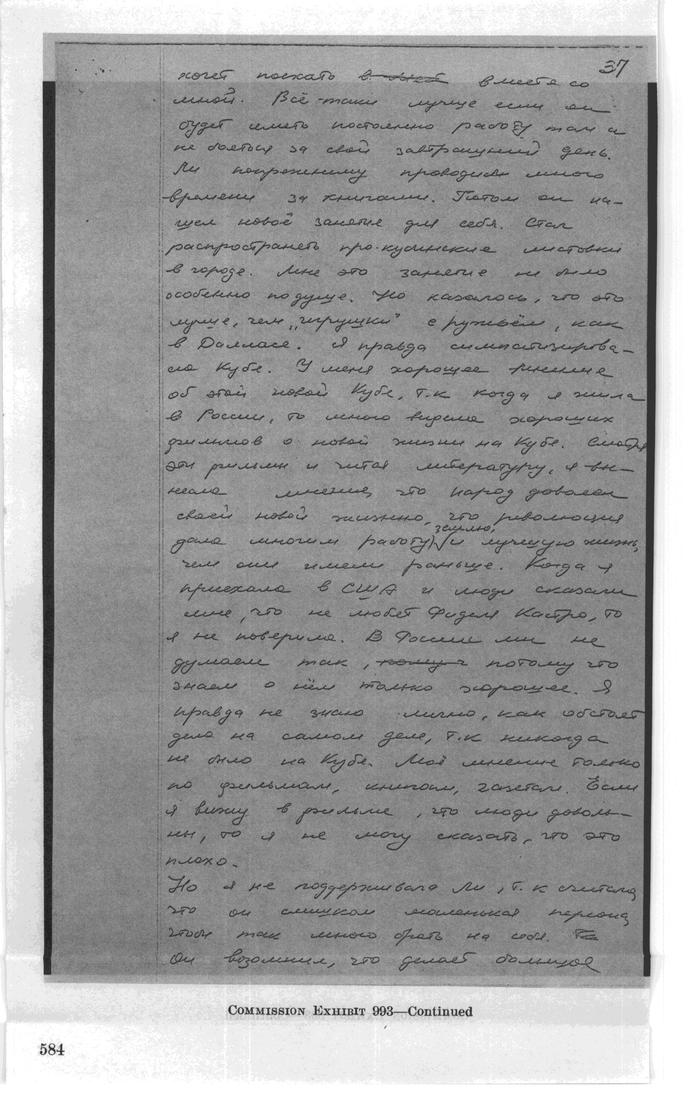 37
хочет поехать вместе со
мной. Всё-таки лучше если он
будет иметь постоянно работу там и
не бояться за свой завтрашний день.
Ли попрежнему проводил много
времени за книгами. Потом он на-
шел новоё занятие для себя. Стал
распространеть про-кубинские листовки
в городе. Мне это занятие не было
особенно по душе. Но казалось, что это
лучше, чем „игрушки" с ружьём, как
в Далласе. Я правда симпатизирова-
ла Кубе. У меня хорошее мнение
об этой новой Кубе, т.к когда я жила
в России, то много видела хороших
фильмов о новой жизни на Кубе. Смотря
эти фильмы и читая литературу, я вы-
несла мнение, что народ доволен
своей новой жизнью, что революция
дала многим работу, землю, и лучшую жизнь,
чем они имели раньше. Когда я
приехала в США и люди сказали
мне, что не любят Фиделя Кастро, то
я не поверила. В России мы не
думаем так, потому что
знаем о нём только хорошее. Я
правда не знаю лично, как обстоят
дела на самом деле, т.к никогда
не была на Кубе. Моё мнение только
по фильмам, книгам, газетам. Если
я вижу в фильме, что люди доволь-
ны, то я не могу сказать, что это
плохо.
Но я не поддерживала Ли, т.к считала,
что он слишком маленькая персона,
чтобы так много брать на себя.
Он возомнил, что делает большое
COMMISSION EXHIBIT 993—Continued
584